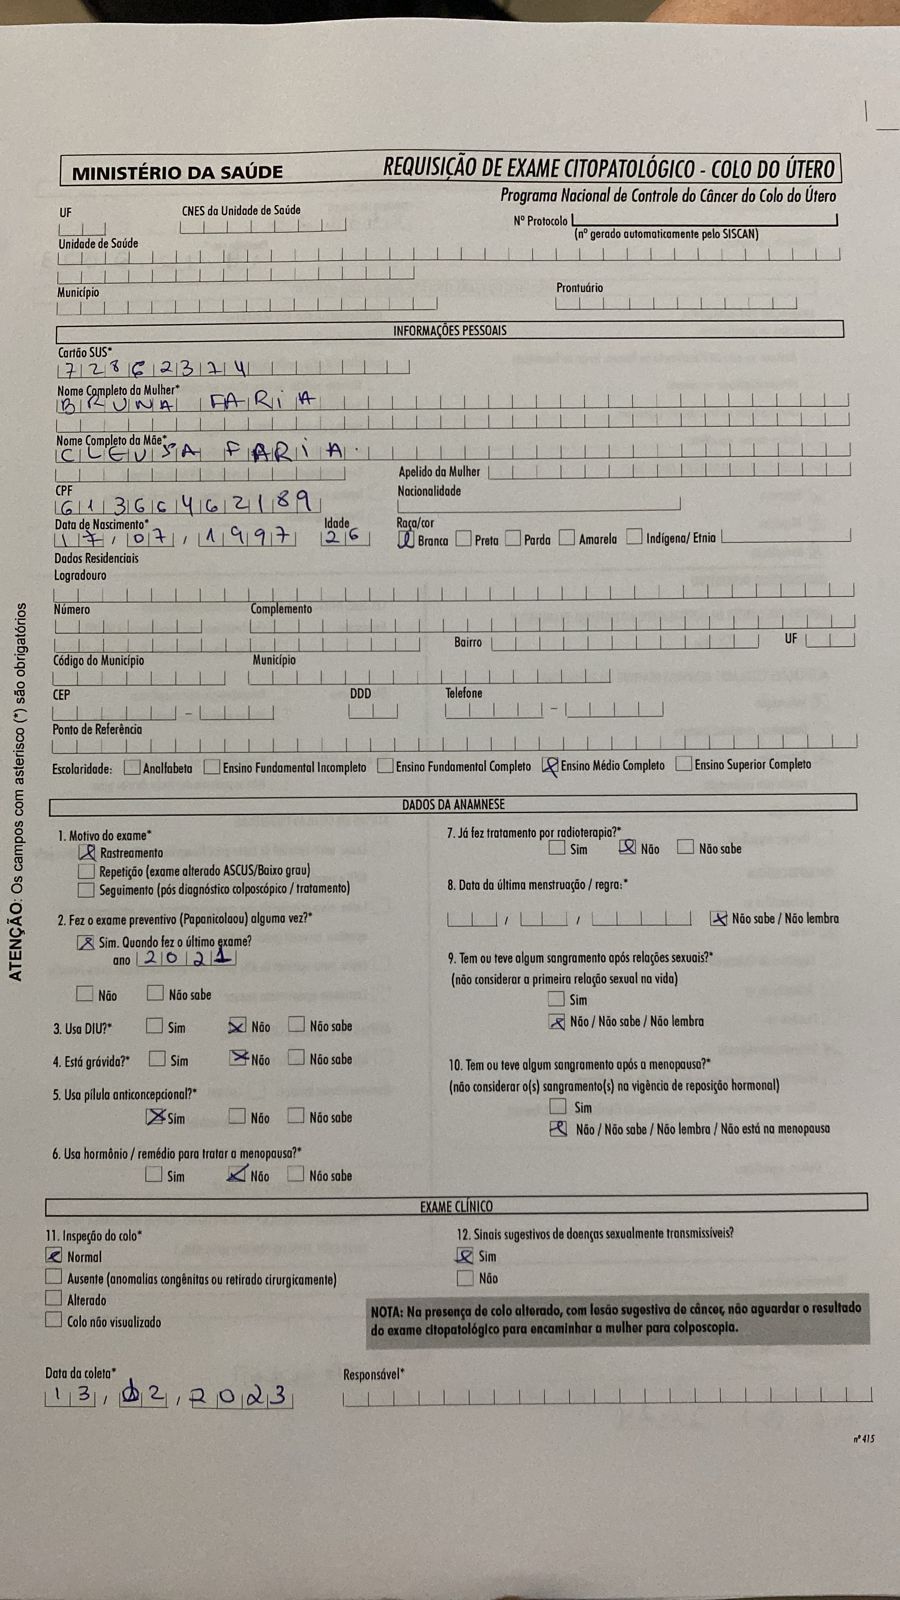 MINISTÉRIO DA SAÚDE REQUISIÇÃO DE EXAME CITOPATOLÓGICO - COLO DO ÚTERO
Programa Nacional de Controle do Câncer do Colo do Útero
UF CNES da Unidade de Saúde Nº Protocolo
(nº gerado automaticamente pelo SISCAN)
Unidade de Saúde
Município Prontuário
INFORMAÇÕES PESSOAIS
Cartão SUS*
Nome Completo da Mulher*
BRUNA FARIA
Nome Completo da Mãe*
CLEUSA FARIA.
Apelido da Mulher
CPF Nacionalidade
61366462189
Data de Nascimento* Idade Raça/cor
17,07,1997 26 Branca Preta Parda Amarela Indígena/ Etnia
Dados Residenciais
Logradouro
Número Complemento
Bairro UF
Código do Município Município
CEP DDD Telefone
Ponto de Referência
Escolaridade: Analfabeta Ensino Fundamental Incompleto Ensino Fundamental Completo Ensino Médio Completo Ensino Superior Completo
ATENÇÃO: Os campos com asterisco (*) são obrigatórios
DADOS DA ANAMNESE
1. Motivo do exame*
Rastreamento
Repetição (exame alterado ASCUS/Baixo grau)
Seguimento (pós diagnóstico colposcópico / tratamento)
2. Fez o exame preventivo (Papanicolaou) alguma vez?*
Sim. Quando fez o último exame?
ano 2021
Não Não sabe
3. Usa DIU?* Sim Não Não sabe
4. Está grávida?* Sim Não Não sabe
5. Usa pílula anticoncepcional?*
Sim Não Não sabe
6. Usa hormônio / remédio para tratar a menopausa?*
Sim Não Não sabe
7. Já fez tratamento por radioterapia?*
Sim Não Não sabe
8. Data da última menstruação / regra:*
/ / Não sabe / Não lembra
9. Tem ou teve algum sangramento após relações sexuais?*
(não considerar a primeira relação sexual na vida)
Sim
Não / Não sabe / Não lembra
10. Tem ou teve algum sangramento após a menopausa?*
(não considerar o(s) sangramento(s) na vigência de reposição hormonal)
Sim
Não / Não sabe / Não lembra / Não está na menopausa
EXAME CLÍNICO
11. Inspeção do colo*
Normal
Ausente (anomalias congênitas ou retirado cirurgicamente)
Alterado
Colo não visualizado
12. Sinais sugestivos de doenças sexualmente transmissíveis?
Sim
Não
NOTA: Na presença de colo alterado, com lesão sugestiva de câncer, não aguardar o resultado
do exame citopatológico para encaminhar a mulher para colposcopia.
Data da coleta* Responsável*
13, 02, 2023
nº 415